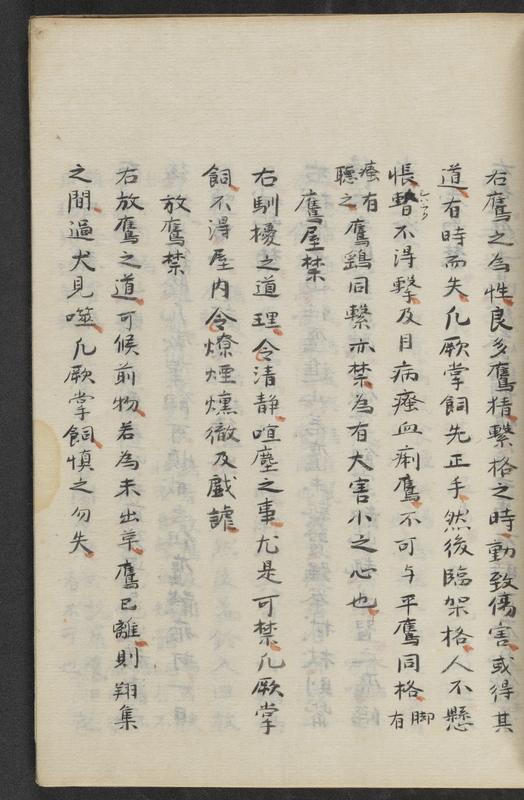 右鷹之為性良多鷹猜繫格之時動致傷害或得其
道有時而失凡厥掌飼先正手然後臨架格人不懸
悵暫不得撃及目病瘙血痢鷹不可与平鷹同格脚有
瘙有聴之鷹鷂同繫亦禁為有大害小之心也
鷹屋禁
右馴擾之道理令清静喧塵之事尤是可禁凡厥掌
飼不得屋内令燎煙爐徹及戯謔
放鷹禁
右放鷹之道可候前物若為未出草鷹已離則翔集
之間過犬見噬凡厥掌飼慎之勿失